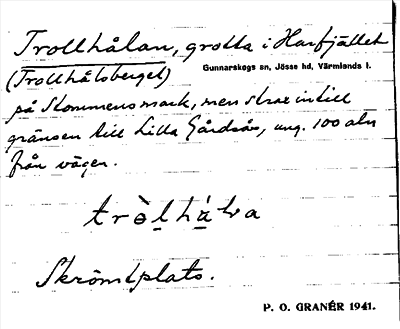 Trollhålan, grotta i Harfjället
(Trollhålsberget)
Gunnarskogs sn, Jösse hd, Värmlands l.
på Stommens mark, men strax intill
gränsen till Lilla Gårdsås, ung. 100 alnr
från vägen.
Skrömtplats.
P. O. GRANÉR 1941.